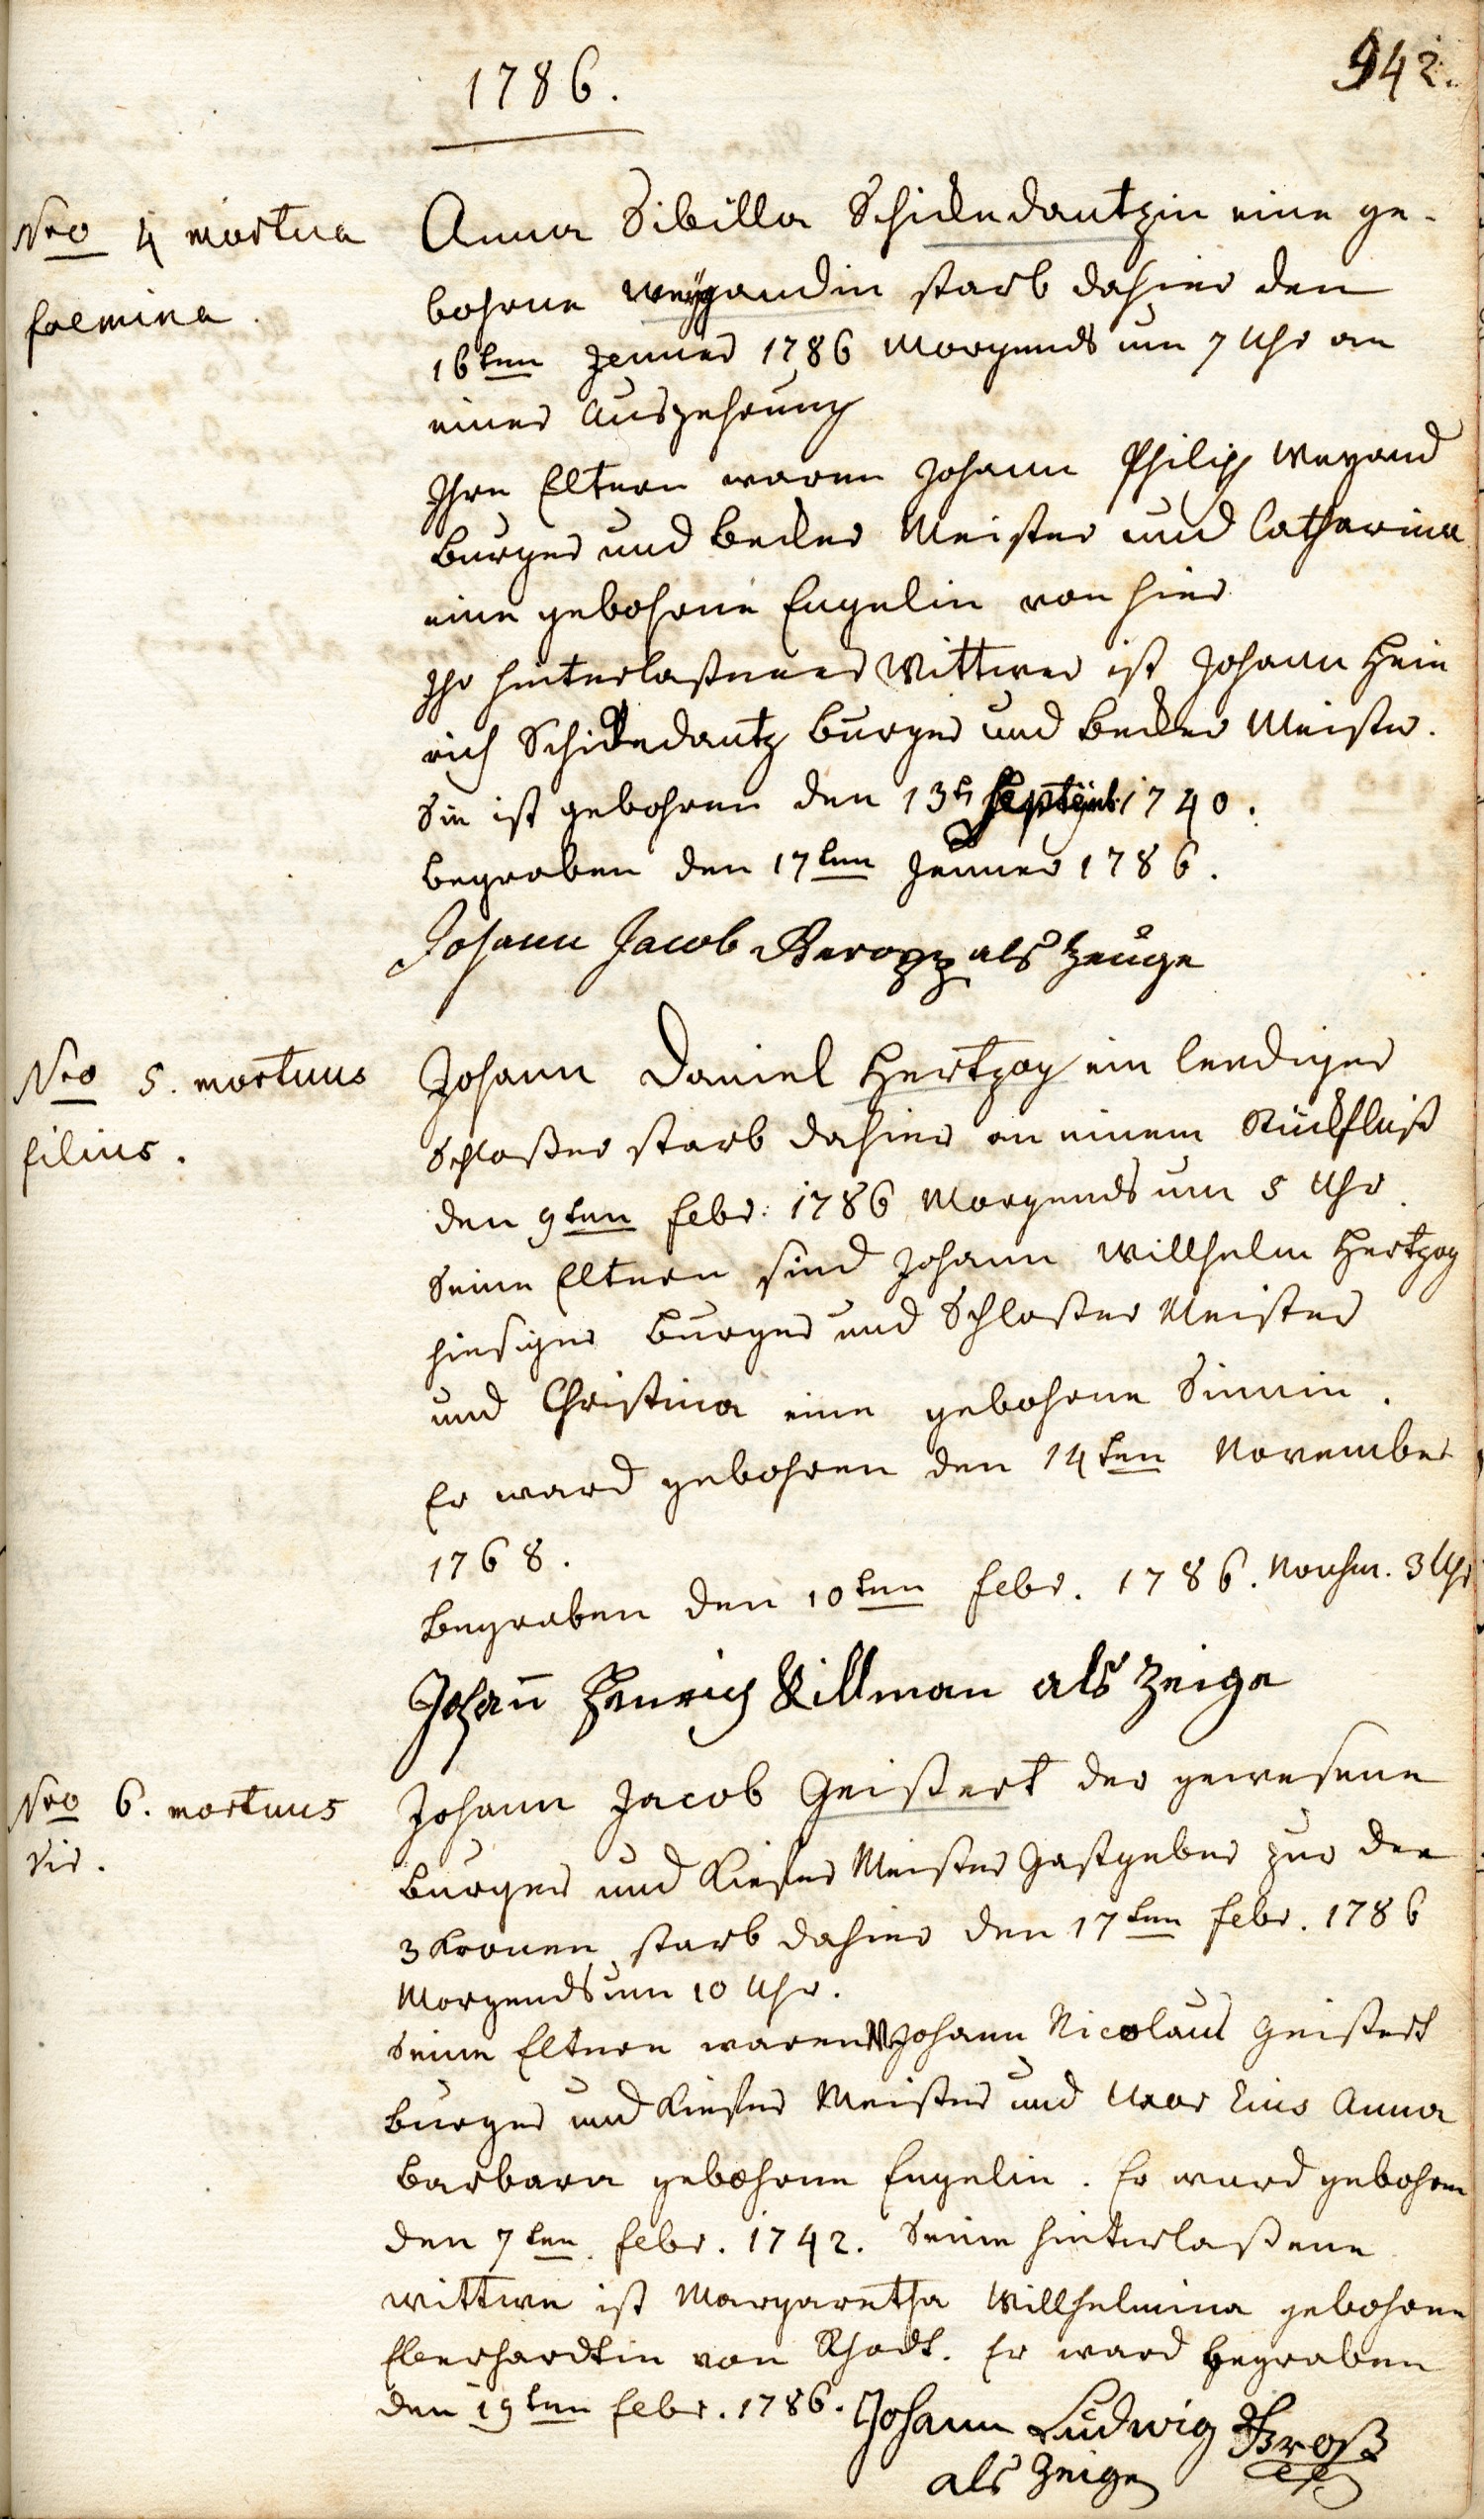 942.
1786.
Nro 4 mortua
foemina.
Anna Sibilla Schickedantzin eine ge-
bohrne Weygandin starb dahier den
16ten Jenner 1786 Morgends um 7 Uhr an
einer Auszehrung
Ihre Eltern waren Johann Philipp Weyand
Burger und Becker Meister und Catharina
eine gebohrne Engelin von hier
Ihr hinterlaßener Wittwer ist Johann Hein
rich Schickedantz Burger und Becker Meister.
Sie ist gebohren den 13t Septemb 1740.
Begraben den 17ten Jenner 1786.
Johann Jacob als Zeuge
Nro 5. mortuus
filius.
Johann Daniel Hertzog ein leediger
Schloßer starb dahier an einem Stückfluß
den 9ten Febr: 1786 Morgends um 5 Uhr.
Seine Eltern sind Johann Willhelm Hertzog
hiesiger Burger und Schloßer Meister
und Christina eine gebohrne Simmin.
Er ward gebohren den 14ten November
1768.
Begraben den 10ten Febr. 1786. Nachm. 3 Uhr
Johann Henrich Killman als Zeige
Nro 6. mortuus
vir.
Johann Jacob Geißert der gewesene
Burger und Kiefer Meister Gastgeber zur den
3 Kronen starb dahier den 17ten Febr. 1786
Morgends um 10 Uhr.
Seine Eltern waren Johann Nicolaus Geißert
Burger und Kiefer Meister und Uxor Eius Anna
Barbara gebohrne Engelin. Er ward gebohren
den 7ten Febr. 1742. Seine hinterlaßene
Wittwe ist Margaretha Willhelmina gebohrne
Eberhardtin von Rhodt. Er ward begraben
den 19ten Febr. 1786. Johann Ludwig Groß
als Zeige